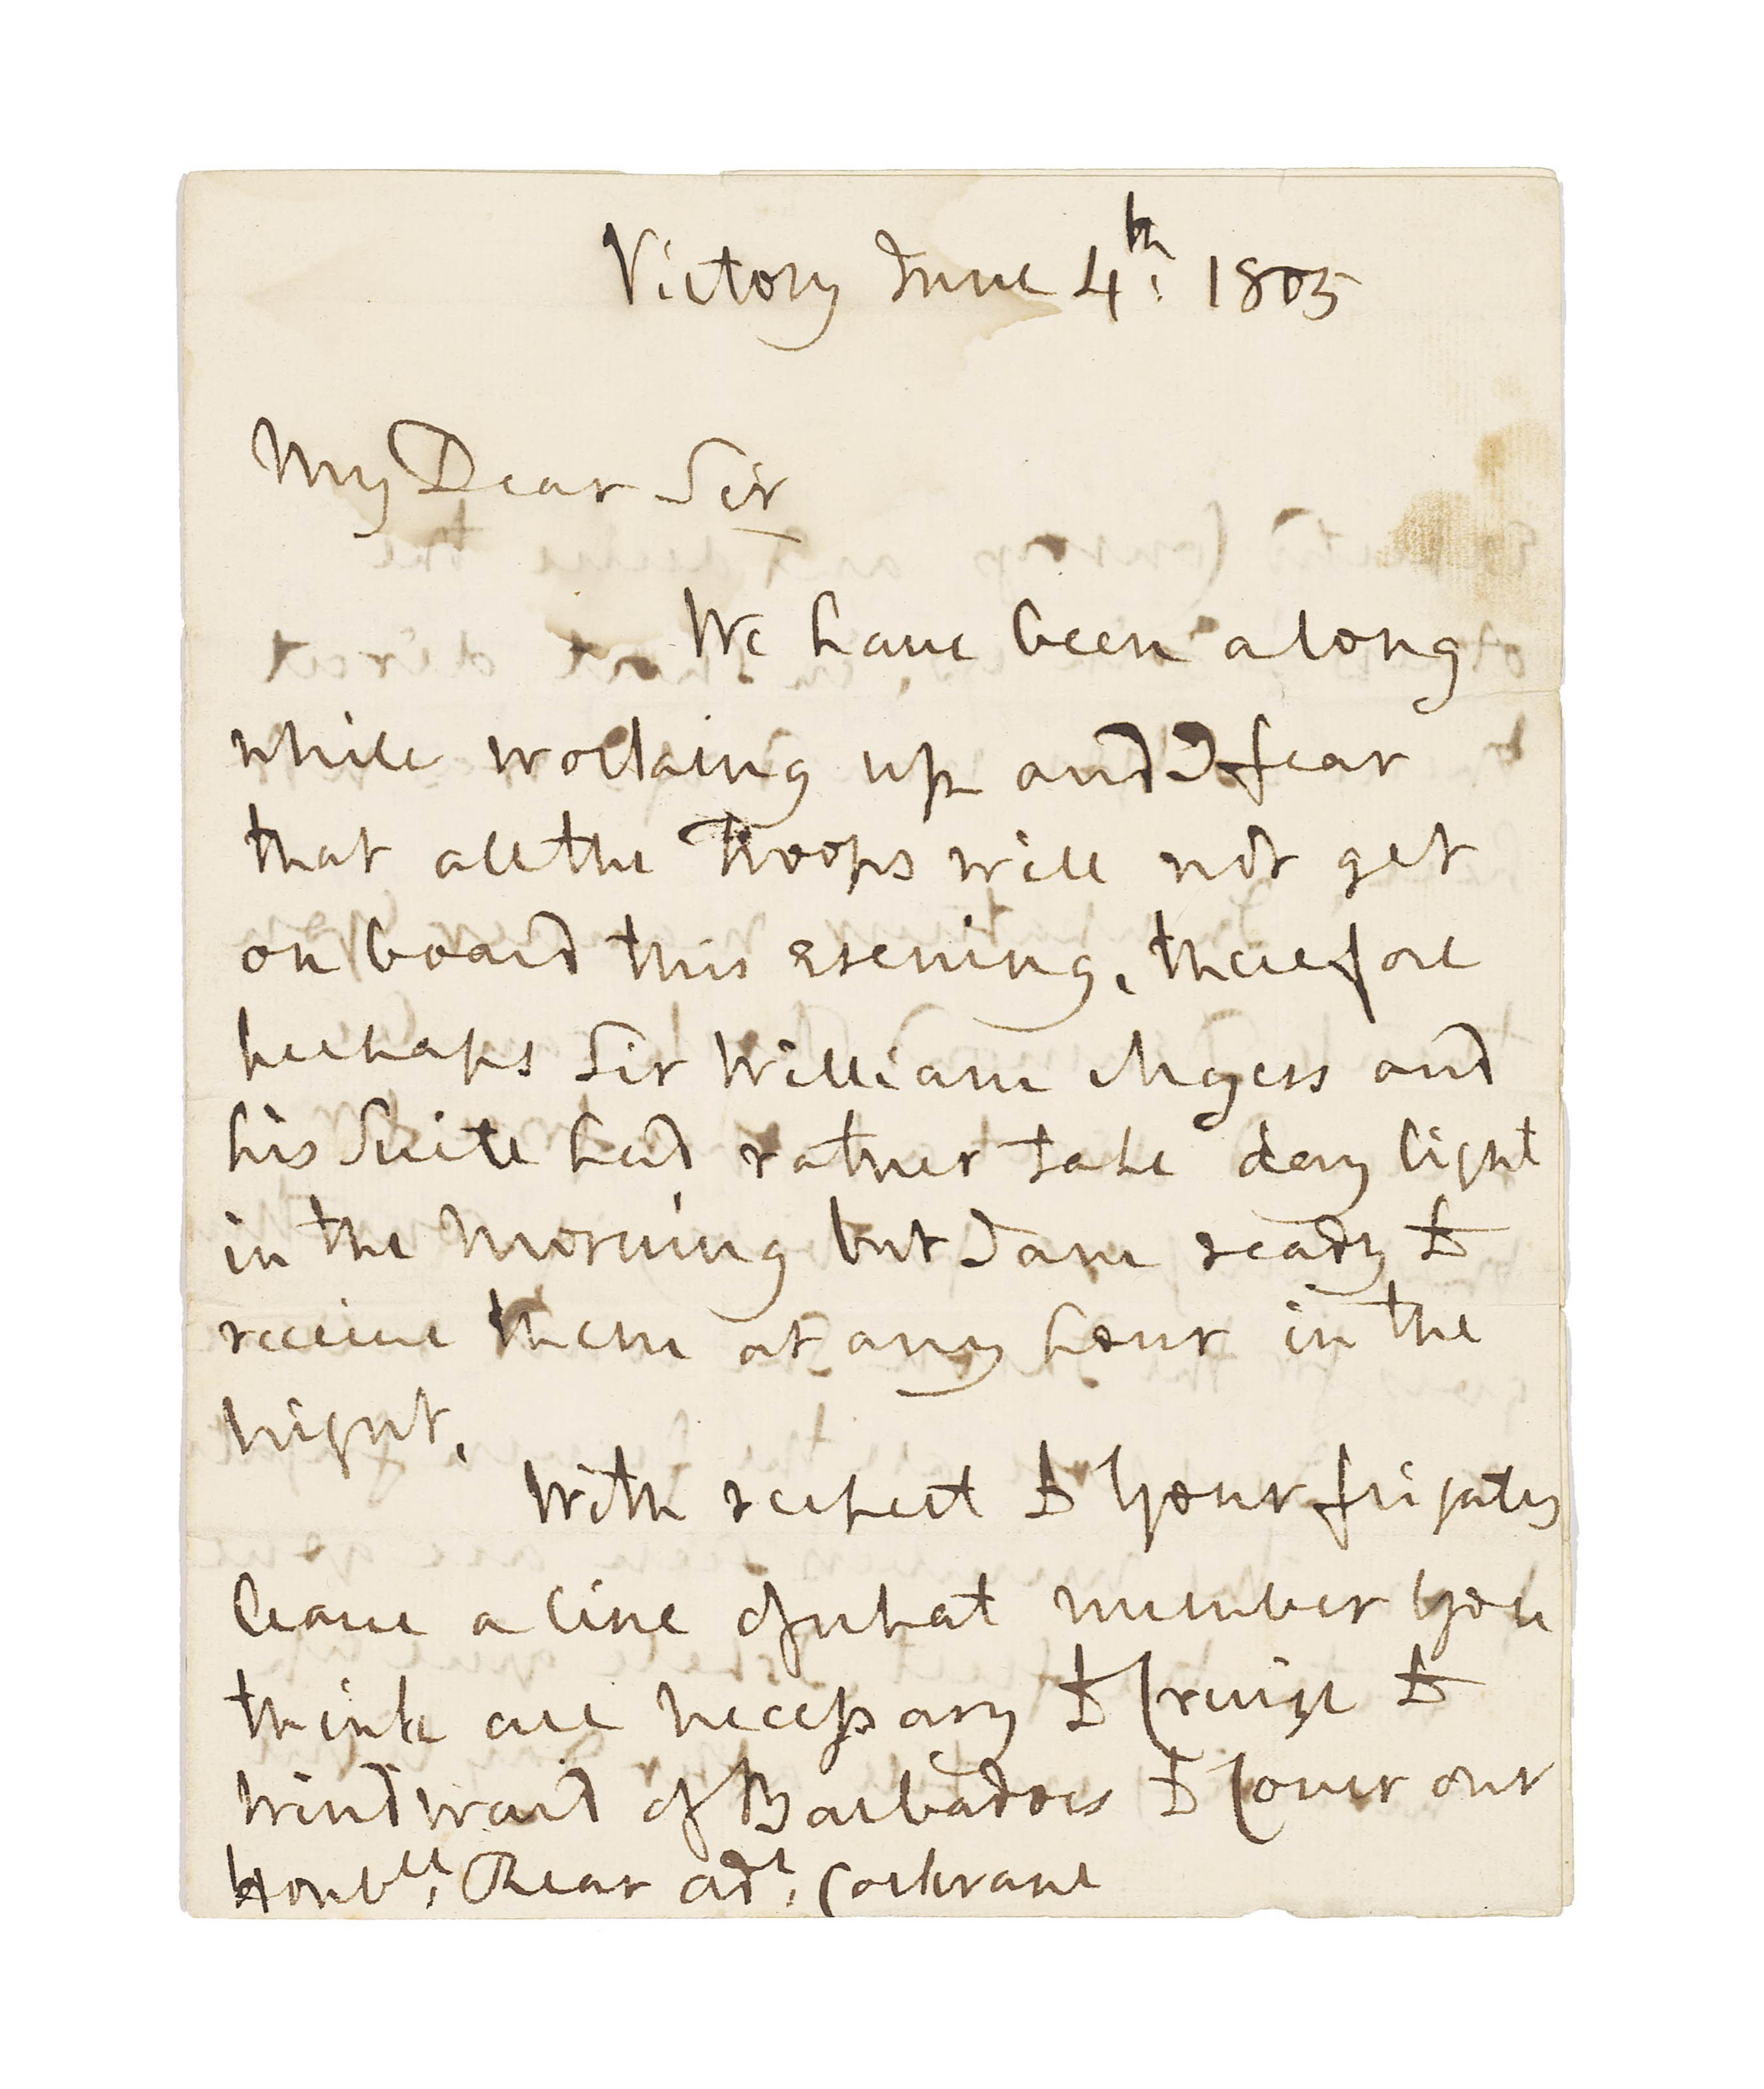 Victory June 4th: 1805
My Dear Sir
We have been along
while working up and I fear
that all the Troops will not get
on board this Evening, therefore
perhaps Sir William Myers and
his Suite had rather take day light
in the Morning but I am ready to
receive them at any hour in the
night.
With respect to Your frigates
leave a line of what number You
think are necessary to Cruize to
Windward of Barbadoes to Cover our
Honble: Rear Adl: Cochrane